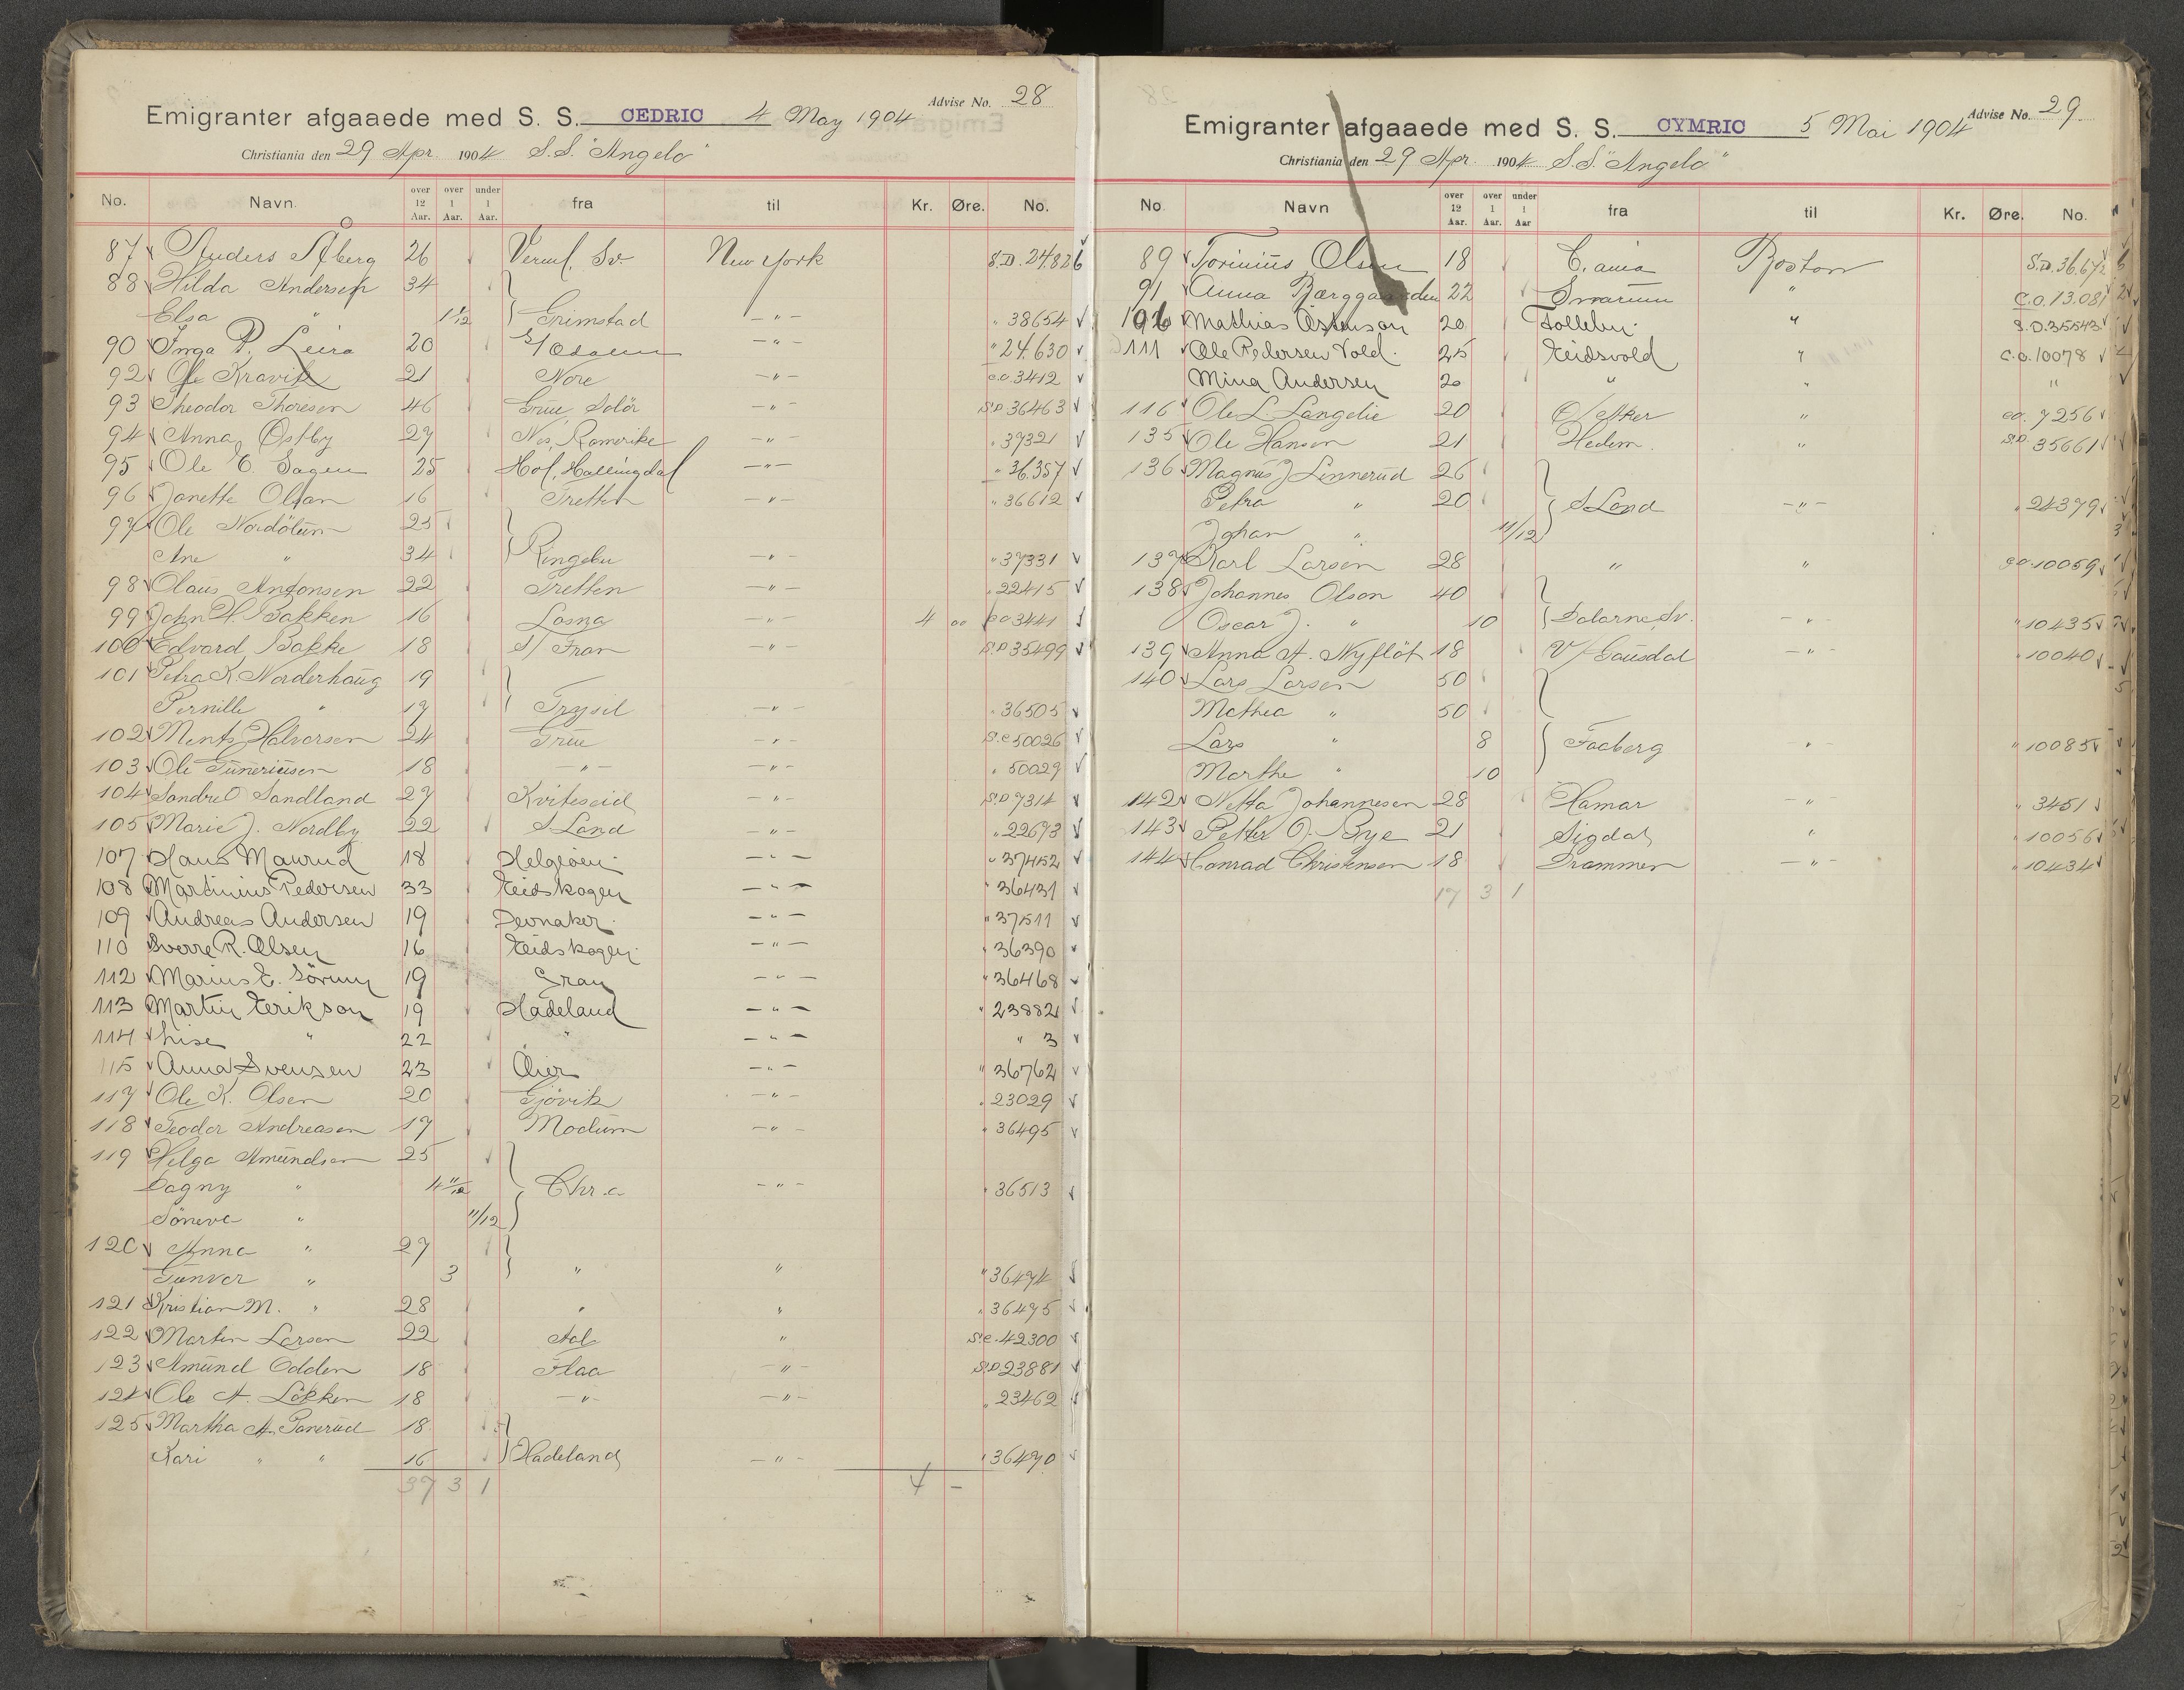 Advise No. 28
Emigranter afgaaede med S. S. CEDRIC 4 May 1904
Christiania den 29 Apr. 1904 S.S. "Angelo"
No. Navn. over 12 Aar. over 1 Aar. under 1 Aar. fra til Kr. Øre. No.
87 Anders Åberg 26 Verml. Sv. New York S.D. 24826
88 Hilda Andersen 34
Elsa " 1 1/12 Grimstad -"- " 38654
90 Inga P. Leira 20 -"- " 24.630
92 Ole Kravik 21 Nore -"- c.o. 3412
93 Theodor Thoresen 46 Grue, Solör -"- S.D. 36463
94 Anna Østby 27 Nes, Romerike -"- " 37321
95 Ole E. Sagen 25 Hol, Hallingdal -"- " 36.357
96 Janette Olsen 16 Tretten -"- " 36612
97 Ole Nordölum 25
Ane " 34 Ringebu -"- " 37331
98 Olaus Antonsen 22 Tretten -"- " 22415
99 John H. Bakken 16 Losna -"- 4 00 c.o 3441
100 Edvard Bakke 18 S/ Fron -"- S.D 35499
101 Petra K. Norderhaug 19
Pernille " 17 Trysil -"- " 36505
102 Mentz Halvorsen 24 Grue -"- S.c 50026
103 Ole Guneriusen 18 -"- -"- " 50029
104 Sondre O Sandland 27 Kviteseid -"- S.D 7314
105 Marie J. Nordby 22 S Land -"- " 22693
107 Hans Maurud 18 Helgöen -"- " 37452
108 Martinius Pedersen 33 Eidskogen -"- " 36431
109 Andreas Andersen 19 Jevnaker -"- " 37511
110 Sverre R. Olsen 16 Eidskogen -"- " 36390
112 Marius E. 19 Gran -"- " 36468
113 Martin Erikson 19 Hadeland -"- " 23882
114 Lise " 22 " -"- " 3
115 Anna Svensen 23 Öier -"- " 36762
117 Ole K. Olsen 20 Gjövik -"- " 23029
118 Teodor Andreasen 17 Modum -"- " 36495
119 Helga Amundsen 25
Dagny " 4 11/12 Chr.a -"- " 36513
Söneva " 11/12
120 Anna " 27
Gunvor " 3 " " " 36474
121 Kristian M. " 28 " " " 36475
122 Martin Larsen 22 Aal " S.c. 42300
123 Amund Odden 18 Flaa -"- S.D. 23881
124 Ole A. Løkken 18 -"- -"- " 23462
125 Martha A. 18
Kari " " 16 Hadeland -"- " 36470
37 3 1 4 -
Advise No. 29
Emigranter afgaaede med S. S. CYMRIC 5 Mai 1904
Christiania den 29 Apr. 1904 S.S. "Angelo"
No Navn over 12 Aar. over 1 Aar. under 1 Aar fra til Kr. Øre. No.
89 Torinius Olsen 18 C.ania Boston S.D. 36.672
91 Anna 22 " c.o. 13.081
106 Mathias Östenson 20 Follebu " S.D. 35543
111 Ole Pedersen Vold 25 Eidsvold " c.o. 10078
Mina Andersen 20 " " "
116 Ole L. Langelie 20 " c.o. 7256
135 Ole Hansen 21 Hedem. " S.D. 35661
136 Magnus J Linnerud 26
Petra " 20 S Land -"- " 24379
Johan " 11/12
137 Karl Larsen 28 " " c.o. 10059
138 Johannes Olson 40
Oscar J. " 10 Dalarne, Sv. -"- " 10435
139 Anna A. Nyflöt 18 V/ Gausdal -"- " 10040
140 Lars Larsen 50
Mathea " 50
Lars " 8 Faaberg -"- " 10085
Marthe " 10
142 Netta Johannesen 28 Hamar -"- " 3451
143 Petter O. Bye 21 Sigdal " " 10056
144 Conrad Christensen 18 Drammen -"- " 10434
17 3 1